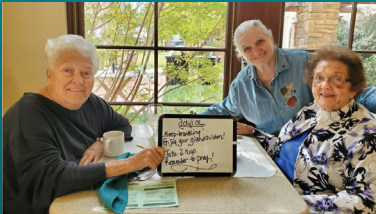 Keep truckin'
Enjoy your grandchildren!
Take a nap
Remember to pray!